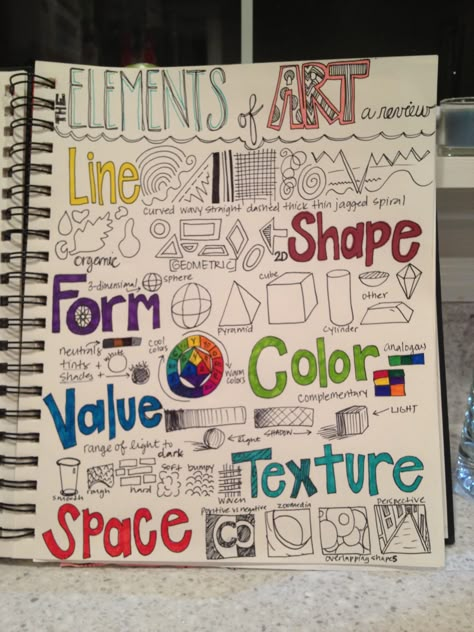 THE ELEMENTS of ART a review
Line
curved wavy straight dashed thick thin jagged spiral
organic
GEOMETRIC
2D Shape
3-dimensional
sphere
cube
Form
other
pyramid
cylinder
neutrals
tints +
white
shades +
cool colors
warm colors
Color
analogous
complementary
Value
range of light to dark
light
SHADOW
LIGHT
smooth
rough
hard
soft
bumpy
woven
Texture
Space
Positive vs negative
zoomed in
perspective
overlapping shapes